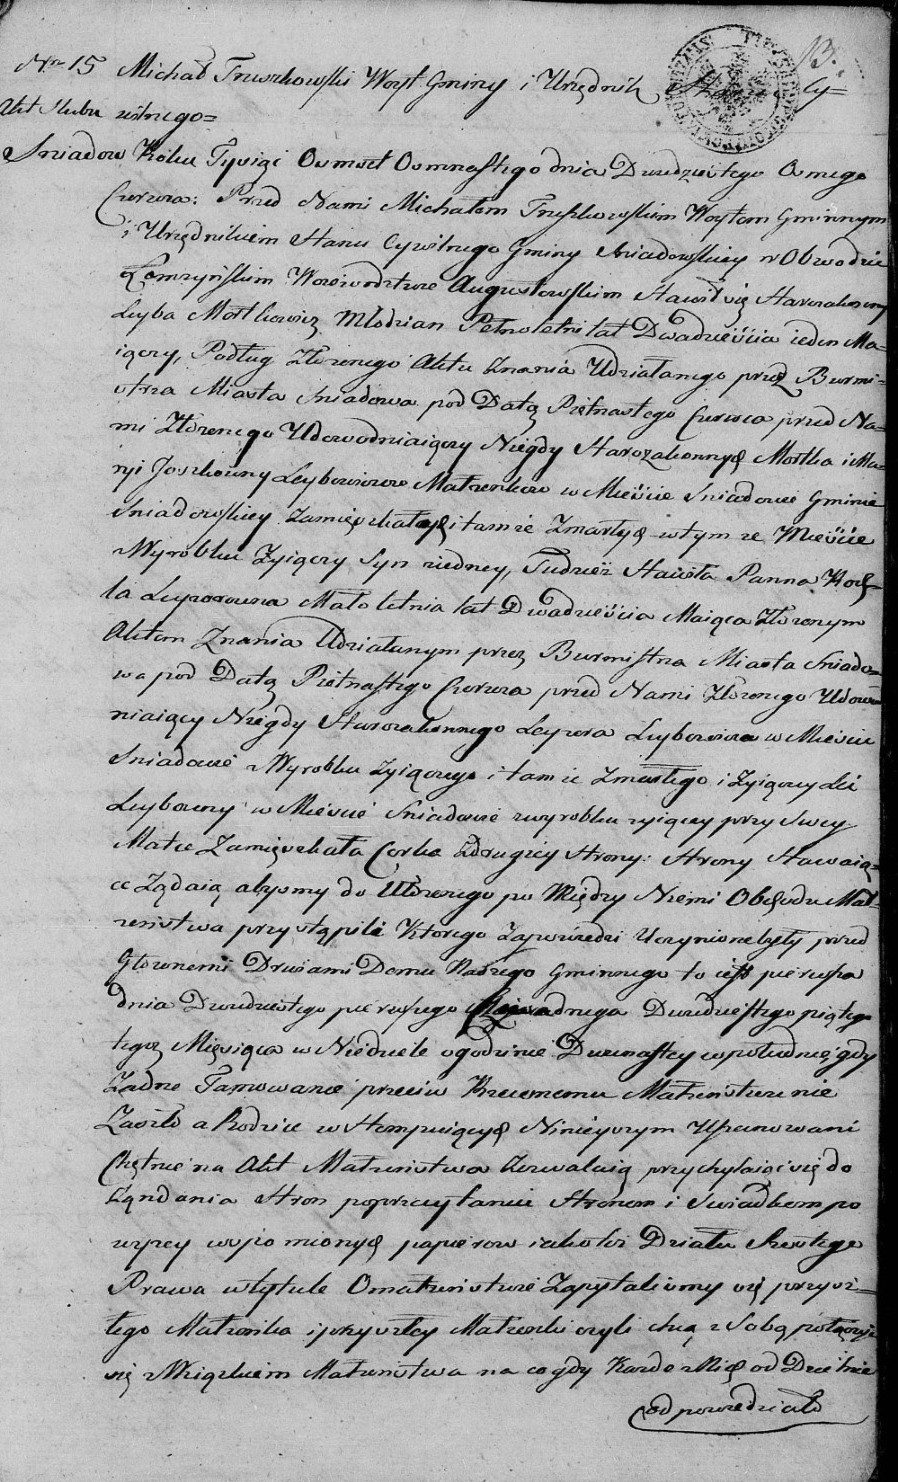 Nro 15 Michał Truszkowski Woyt Gminy i Urzędnik Stanu Cy=
Akt Slubu wilnego=
Sniadow Roku Tysiąc Osmset Osmnastego dnia Dwudziestego Osmego
Czerwca: Przed Nami Michałem Truszkowskim Woytem Gminnym
i Urzędnikiem Stanu Cywilnego Gminy Sniadowskiey w Obwodzie
Łomzyńskim Woiewodztwie Augustowskim Stawił się Starozakonny
Leyba Mostkowicz Młodzian Pełnoletni lat Dwadzieścia ieden Ma=
iący, Podług Złożonego Aktu Znania Udziałanego przez Burmi=
strza Miasta Sniadowa pod Datą Piętnastego Czerwca przed Na=
mi Złożonego Udowodniaiący Niegdy Starozakonnych Mostka i Ma=
ryi Joszkowny Leybowiczow Małżonkow w Mieście Sniadowie Gminie
Sniadowskiey Zamięszkałych i tamże Zmarłych w tym ze Mieście
z Wyrobku Zyiący Syn z iedney, Tudzież Stawiła Panna Roch=
la Leyzorowna Mało letnia lat Dwadzieścia Maiąca Złożonym
Aktem Znania Udziałanym przez Burmistrza Miasta Sniado=
wa pod Datą Piętnastego Czerwca przed Nami Złożonego Udowo
niaiący Niegdy Starozakonnego Leyzora Leybowicza w Mieście
Sniadowie z Wyrobku Zyiącego i tam że Zmarłego i Zyiącey Lei
Leybowny w Mieście Sniadowie z wyrobku zyiącey przy Swey
Matce Zamięszkała Corka z drugiey Strony: Strony Stawaią=
ce Ządaią abysmy do Ułożonego po Między Niemi Obchodu Mał=
żeństwa przystąpili Ktorego Zapowiedzi Uczynione były przed
Głownemi Drzwiami Domu Naszego Gminnego to iest pierwsza
dnia Dwudziestego pierwszego druga Dwudziestego piątego
tegoz Miesiąca w Niedziele o godzinie Dwunastey w południe, gdy
Żadne Tamowanie przeciw Rzeczonemu Małżeństwu nie
Zaszło a Rodzice w Stempuiących Ninieyszym Uszanowani
Chętnie na Akt Małżenstwa Zezwalaią przychylaiąc się do
Ządania Stron po przeczytaniu Stronom i Swiadkom po
wyzey wspomionych papierow iakotez Działu Szostego
Prawa w tytule O małżenstwie Zapytalismy się przysz=
łego Małżonka i przyszłey Małżonki czyli chcą z Sobą połączyć
się z Wiązkiem Małżenstwa na co gdy Kazde z Nich od Dzielnie
odpowiedziało